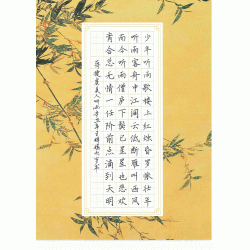 少年听雨歌楼上红烛昏罗帐壮年
听雨客舟中江阔云低断雁叫西风
而今听雨僧庐下鬓已星星也悲欢
离合总无情一任阶前点滴到天明
蒋捷虞美人听雨